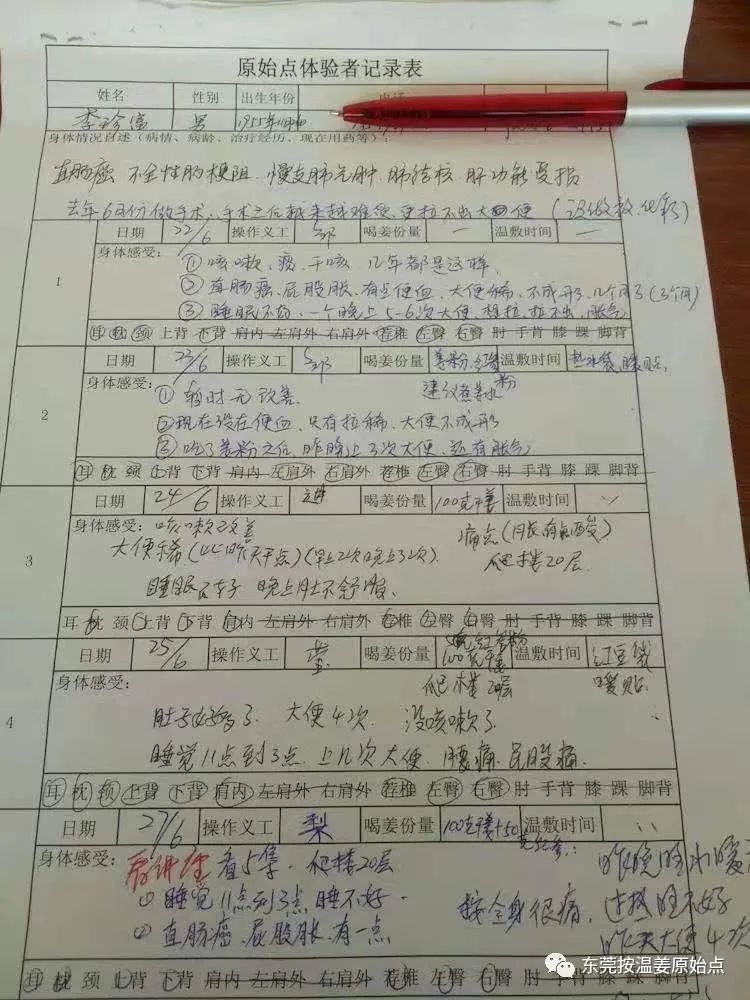 原始点体验者记录表
姓名 性别 出生年份
男 1955年
身体情况自述（病情、病龄、治疗经历、现在用药等）：
直肠癌 不全性肠梗阻 慢支肺气肿 肺结核 肝功能受损
去年6月份做手术，手术之后越来越难受，更拉不出大便（没做放、化疗）
日期 22/6 操作义工 邹 喝姜份量 一 温敷时间 一
1
身体感受：
①咳嗽、痰、干咳 几年都是这样
②直肠癌、屁股胀、有点便血、大便稀、不成形、几个月了（3个月）
③睡眠不好、一个晚上5-6次大便、想拉，拉不出、胀气
耳 枕 颈 上背 下背 肩内 左肩外 右肩外 荐椎 左臀 右臀 肘 手背 膝 踝 脚背
日期 23/6 操作义工 邹 喝姜份量 姜粉 温敷时间 热水袋 暖贴
2
身体感受：
①暂时无改善 建议煮姜粉
②现在没在便血，只有拉稀、大便不成形
③吃了姜粉之后，昨晚上3次大便，还有胀气
耳 枕 颈 上背 下背 肩内 左肩外 右肩外 荐椎 左臀 右臀 肘 手背 膝 踝 脚背
日期 24/6 操作义工 喝姜份量 100克干姜 温敷时间 ''
3
身体感受：咳嗽改善
大便稀（比昨天干点）（早上2次晚上3次） 爬楼20层
睡眠不好 晚上肚不舒服
耳 枕 颈 上背 下背 肩内 左肩外 右肩外 荐椎 左臀 右臀 肘 手背 膝 踝 脚背
日期 25/6 操作义工 喝姜份量 100克干姜 温敷时间 红豆袋
暖贴
4
身体感受： 爬楼20层
肚子好多了 大便4次 没咳嗽了
睡觉11点到3点 上几次大便 腰痛 屁股痛
耳 枕 颈 上背 下背 肩内 左肩外 右肩外 荐椎 左臀 右臀 肘 手背 膝 踝 脚背
日期 27/6 操作义工 梨 喝姜份量 100克干姜+50 温敷时间 ''
身体感受： 看5集 爬楼20层
①睡觉11点到3点 睡不好 按全身很痛
②直肠癌 屁股胀 有一点
过热睡不好
昨天大便4次
耳 枕 颈 上背 下背 肩内 左肩外 右肩外 荐椎 左臀 右臀 肘 手背 膝 踝 脚背
东莞按温姜原始点